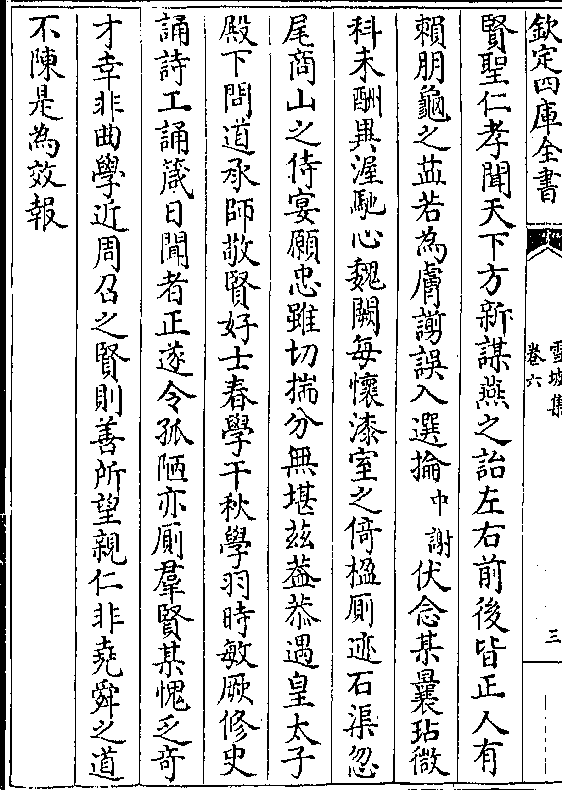 欽定四庫全書
雪坡集
卷六
三
賢聖仁孝聞天下方新謀燕之詒左右前後皆正人有
賴朋龜之益若為膚謭誤入選掄中謝伏念某曩玷微
科未酬異渥馳心魏闕每懷漆室之倚楹厠迹石渠忽
尾商山之侍宴願忠雖切揣分無堪兹葢恭遇皇太子
殿下問道承師敬賢好士春學干秋學羽時敏厥修史
誦詩工誦箴日聞者正遂令孤陋亦厠羣賢某愧乏竒
才幸非曲學近周召之賢則善所望親仁非堯舜之道
不陳是為效報